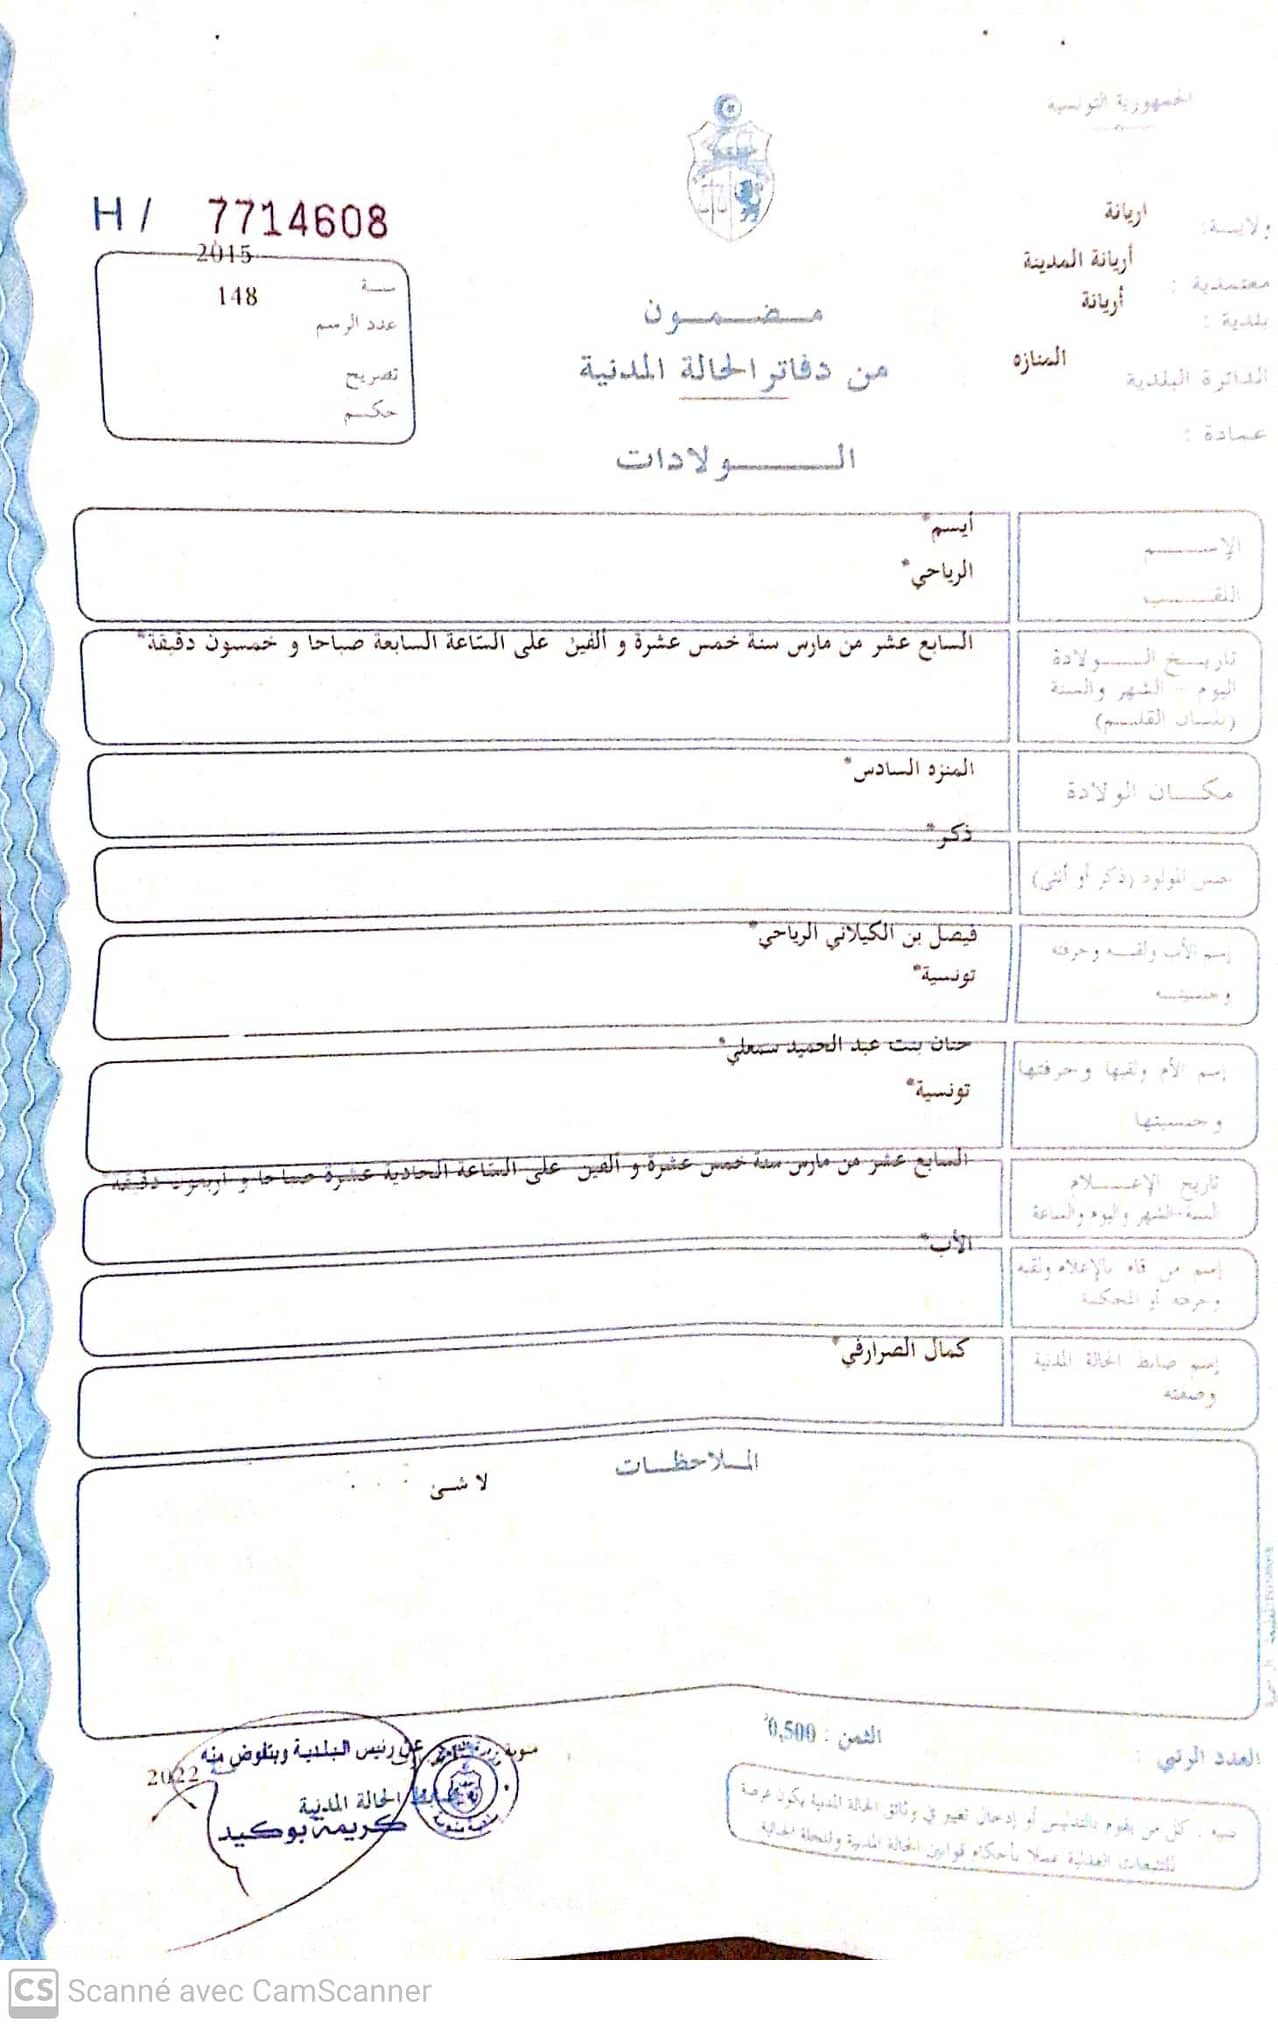 الجمهورية التونسية
ولايـــة: اريانة
معتمدية : أريانة المدينة
بلدية : أريانة
الدائرة البلدية المنازه
عمادة :
مـــضـــمـــون
من دفاتر الحالة المدنية
الـــــــولادات
H / 7714608
2015
سنة
148
عدد الرسم
تصريح
حكم
الإســـم أيسم*
اللقـــب الرياحي*
تاريـــخ الـــــولادة السابع عشر من مارس سنة خمس عشرة و ألفين على السّاعة السابعة صباحا و خمسون دقيقة*
اليوم - الشهر والسنة
(بلسان القلـــم)
مكـــان الولادة المنزه السادس*
جنس المولود (ذكر أو أنثى) ذكر*
إسم الأب ولقبـــه وحرفته فيصل بن الكيلاني الرياحي*
وجنسيتـــه تونسية*
إسم الأم ولقبها وحرفتها حنان بنت عبد الحميد سمعلي*
وجنسيتها تونسية*
تاريخ الإعـــلام السابع عشر من مارس سنة خمس عشرة و ألفين على السّاعة الحادية عشرة صباحا و اربعون دقيقة*
السنة-الشهر واليوم والساعة
إسم من قام بالإعلام ولقبه الأب*
وحرفته أو المحكمة
إسم ضابط الحالة المدنية كمال الصرارفي*
وصفته
المـــلاحظـــات
لا شئ
الثمن : 0,500
العدد الرتبي :
عن رئيس البلدية وبتفوض منه
2022
ضابط الحالة المدنية
كريمة بوكيد
تنبيه . كل من يقوم بالتدليس أو إدخال تغيير في وثائق الحالة المدنية يكون عرضة
للتتبعات العدلية عملا بأحكام قوانين الحالة المدنية والمجلة الجنائية
CS Scanné avec CamScanner